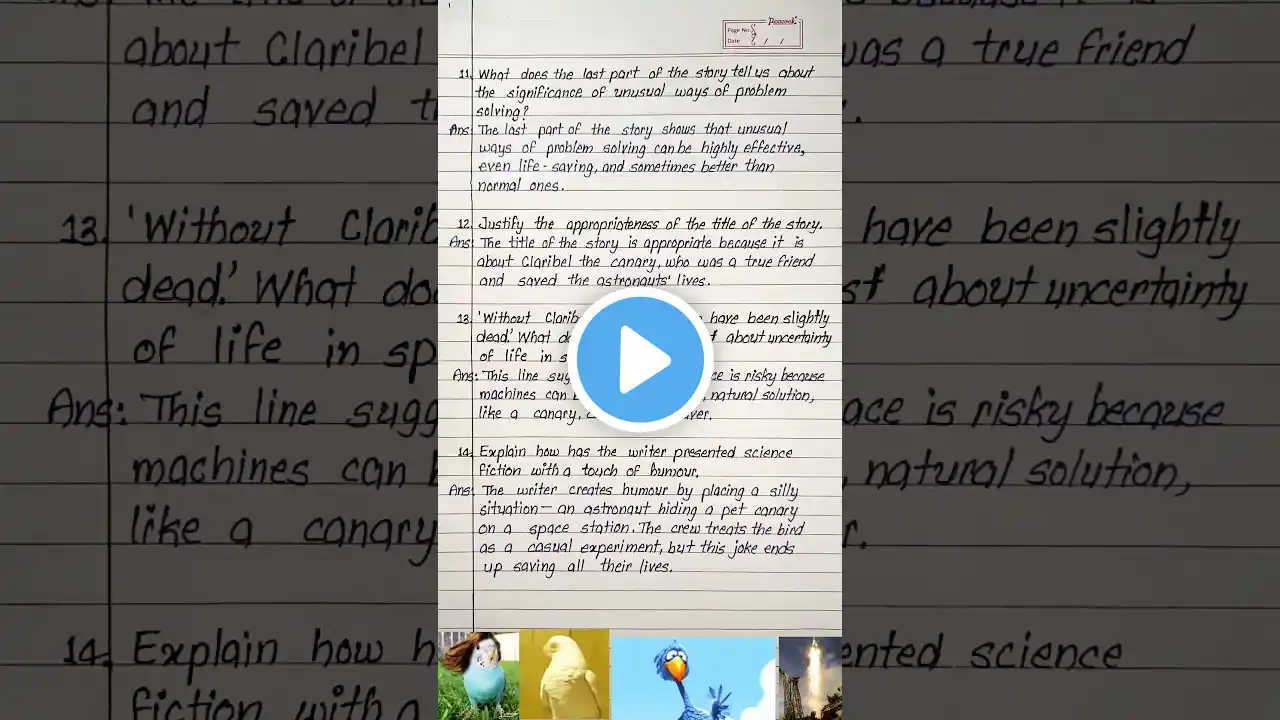 Peacock
Page No.
Date / /
11. What does the last part of the story tell us about
the significance of unusual ways of problem
solving?
Ans: The last part of the story shows that unusual
ways of problem solving can be highly effective,
even life-saving, and sometimes better than
normal ones.
12. Justify the appropriateness of the title of the story.
Ans: The title of the story is appropriate because it is
about Claribel the canary, who was a true friend
and saved the astronauts' lives.
13. 'Without have been slightly
dead.' What about uncertainty
of life in
Ans: This line is risky because
machines can natural solution,
like a canary,
14. Explain how has the writer presented science
fiction with a touch of humour.
Ans: The writer creates humour by placing a silly
situation — an astronaut hiding a pet canary
on a space station. The crew treats the bird
as a casual experiment, but this joke ends
up saving all their lives.